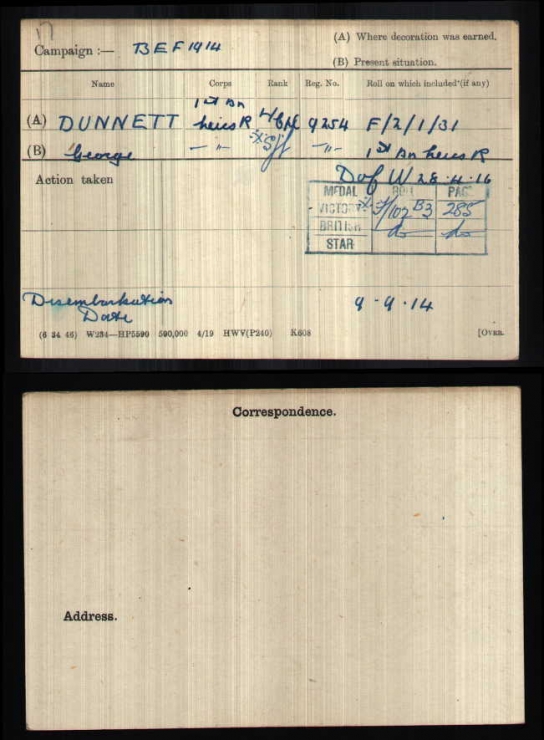 17
Campaign :— B E F 1914
(A) Where decoration was earned.
(B) Present situation.
Name Corps Rank Reg. No. Roll on which included (if any)
(A) DUNNETT 1st Bn Leics R 9254 F/2/1/31
(B) George — " — Sjt — " — 1st Bn Leics R
Action taken D of W 28.11.16
MEDAL ROLL PAGE
VICTORY J/102 B3 285
BRITISH do do
STAR
Disembarkation 9.9.14
Date
(6 34 46) W234—HP5590 500,000 4/19 HWV(P240) K608 [OVER.
Correspondence.
Address.